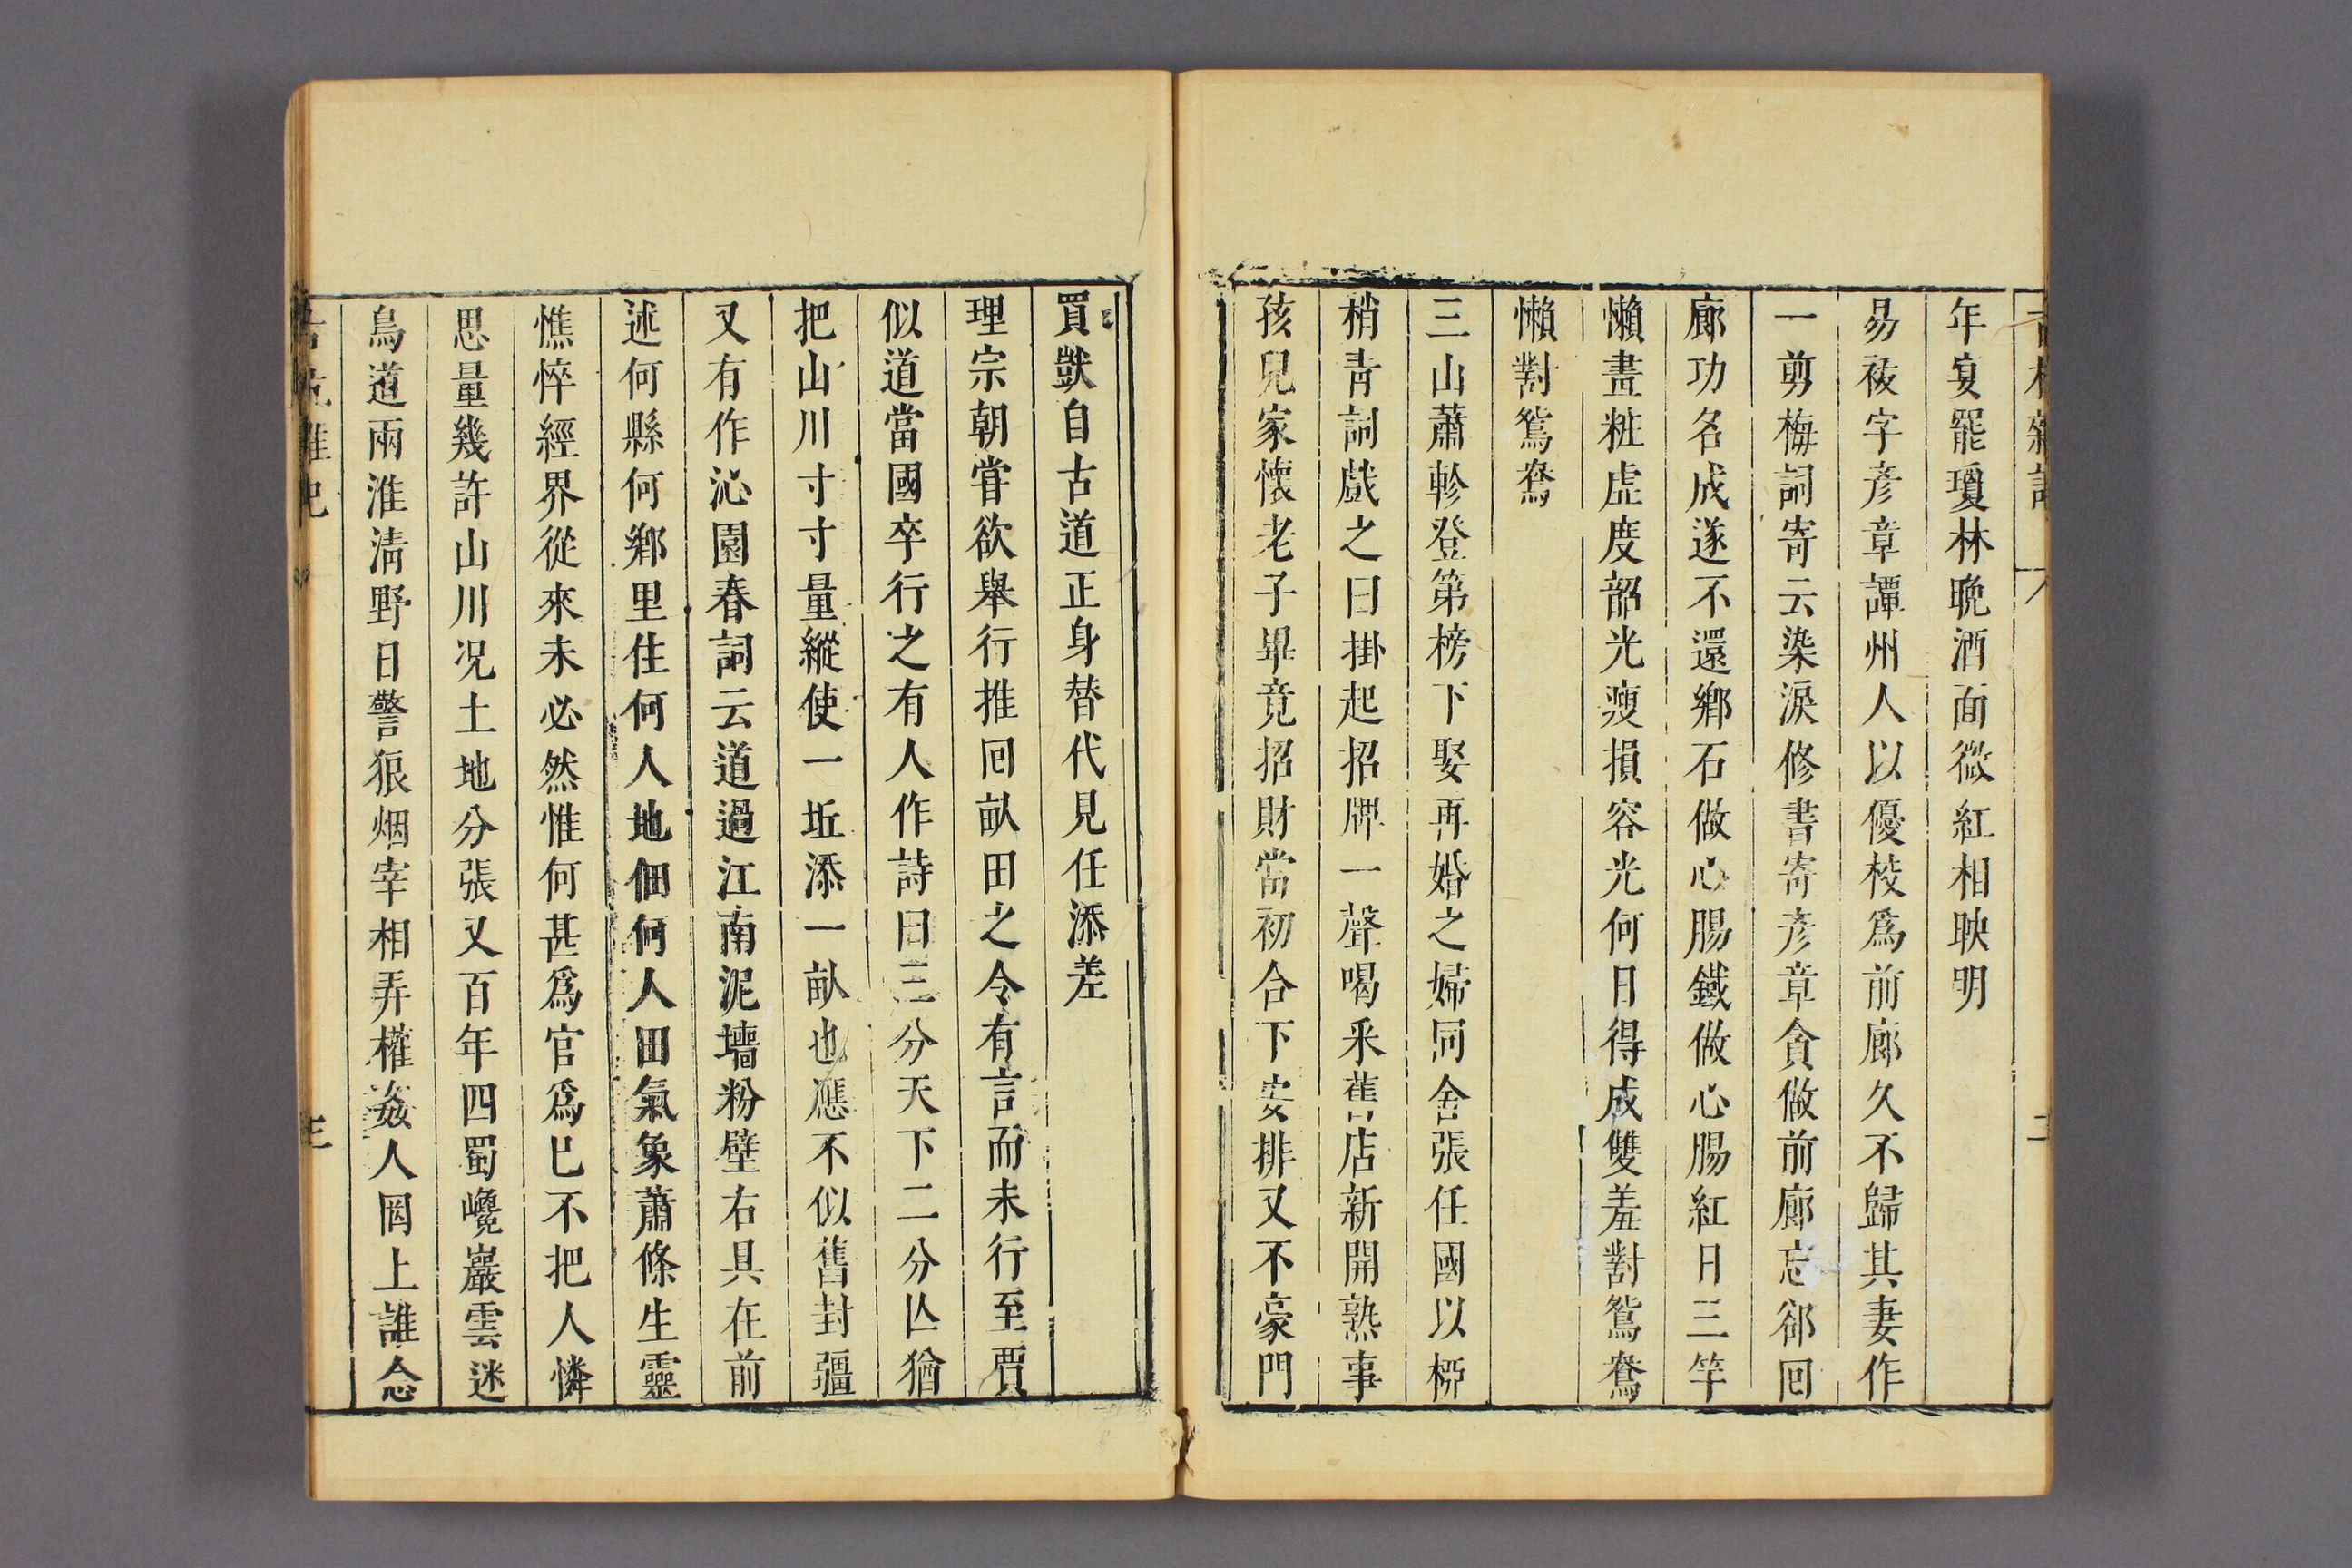 年宴罷瓊林晩酒面微紅相映明
易祓字彦章譚州人以優校爲前廊久不歸其妻作
一剪梅詞寄云染淚修書寄彦章貪做前廊忘郤囘
廊功名成遂不還鄉石做心腸鐵做心腸紅日三竿
懶畫粧虛度韶光瘦損容光何日得成雙羞對鴛鴦
懶對鴛鴦
三山蕭軫登第榜下娶再婚之婦同舍張任國以柳
梢青詞戲之曰掛起招牌一聲喝采舊店新開熟事
孩兒家懷老子畢竟招財當初合下安排又不豪門
買獃自古道正身替代見任添差
理宗朝嘗欲舉行推囘畝田之令有言而未行至賈
似道當國卒行之有人作詩曰三分天下二分亾猶
把山川寸寸量縱使一坵添一畝也應不似舊封疆
又有作沁園春詞云道過江南泥墻粉壁右具在前
述何縣何鄉里住何人地佃何人田氣象蕭條生靈
憔悴經界從來未必然惟何甚爲官爲巳不把人憐
思量幾許山川况土地分張又百年四蜀巉巖雲迷
鳥道兩淮清野日警狼烟宰相弄權姦人罔上誰念